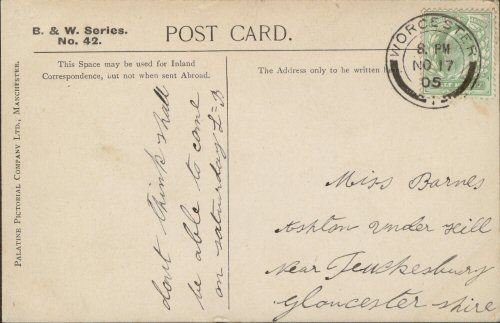 B. & W. Series.
No. 42.
POST CARD.
This Space may be used for Inland
Correspondence, but not when sent Abroad.
The Address only to be written here.
PALATINE PICTORIAL COMPANY LTD., MANCHESTER.
WORCESTER
8. PM
NO 17
05
don't think shall
be able to come
on saturday L=B
Miss Barnes
Ashton Under Hill
Near Teuckesbury
Gloucester shire